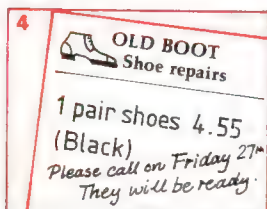 4
OLD BOOT
Shoe repairs
1 pair shoes 4.55
(Black)
Please call on Friday 27th
They will be ready.